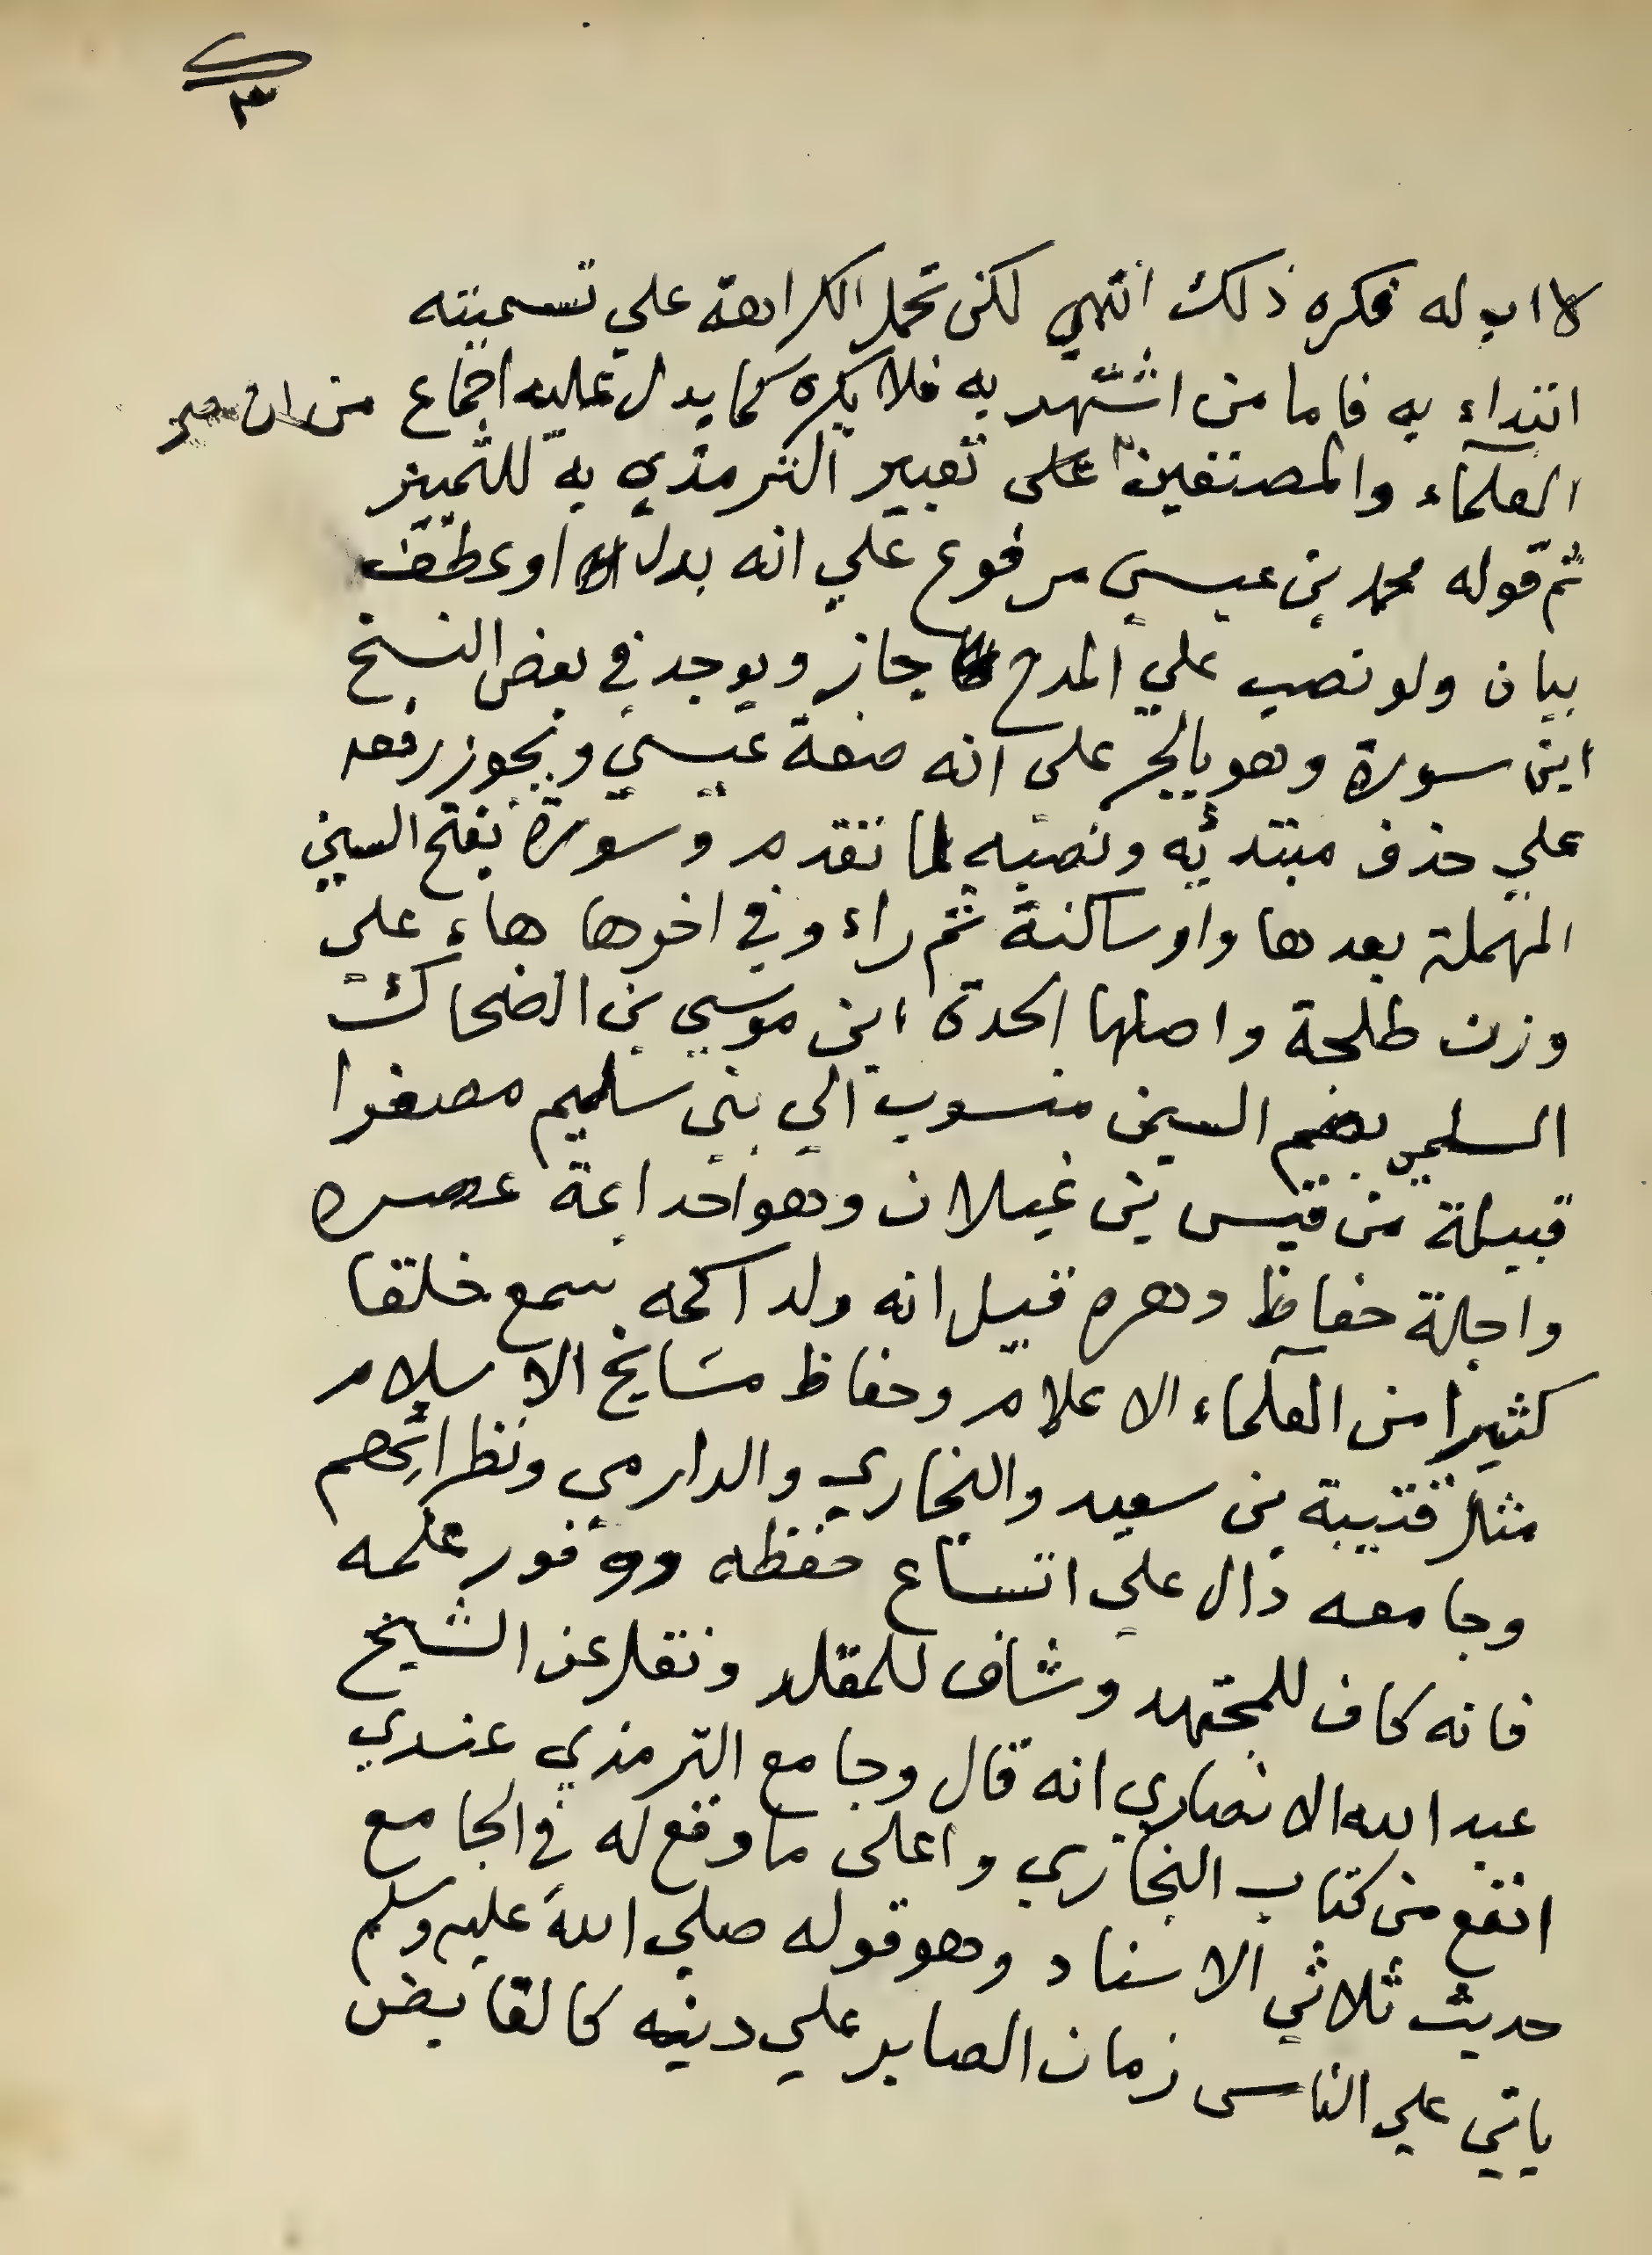 ٣
لا اب له فكره ذلك انتهي لكن تحمل الكراهة علي تسميته
ابتداء به فاما من اشتهر به فلا يكره كما يدل عليه اجماع من
العلماء والمصنفين على تعبير الترمذي به للتمييز
ثم قوله محمد بن عيسي مرفوع علي انه بدل او عطف
بيان ولو نصب علي المدح جاز ويوجد في بعض النسخ
ابن سورة وهو بالجر على انه صفة عيسي ويجوز رفعه
علي حذف مبتدئه ونصبه لما تقدم وسورة بفتح السين
المهملة بعدها واو ساكنة ثم راء وفي اخرها هاء على
وزن طلحة واصلها الحدة ابن موسي بن الضحاك
السلمي بضم السين منسوب الي بني سليم مصغرا
قبيلة من قيس بن غيلان وهو احد ائمة عصره
واجلة حفاظ دهره قيل انه ولد اكمه سمع خلقا
كثيرا من العلماء الاعلام وحفاظ مشايخ الاسلام
مثل قتيبة بن سعيد والبخاري والدارمي ونظرائهم
وجامعه دال علي اتساع حفظه ووفور علمه
فانه كاف للمجتهد وشاف للمقلد ونقل عن الشيخ
عبد الله الانصاري انه قال وجامع الترمذي عندي
انفع من كتاب البخاري واعلى ما وقع له في الجامع
حديث ثلاثي الاسناد وهو قوله صلي الله عليه وسلم
ياتي علي الناس زمان الصابر علي دينه كالقابض